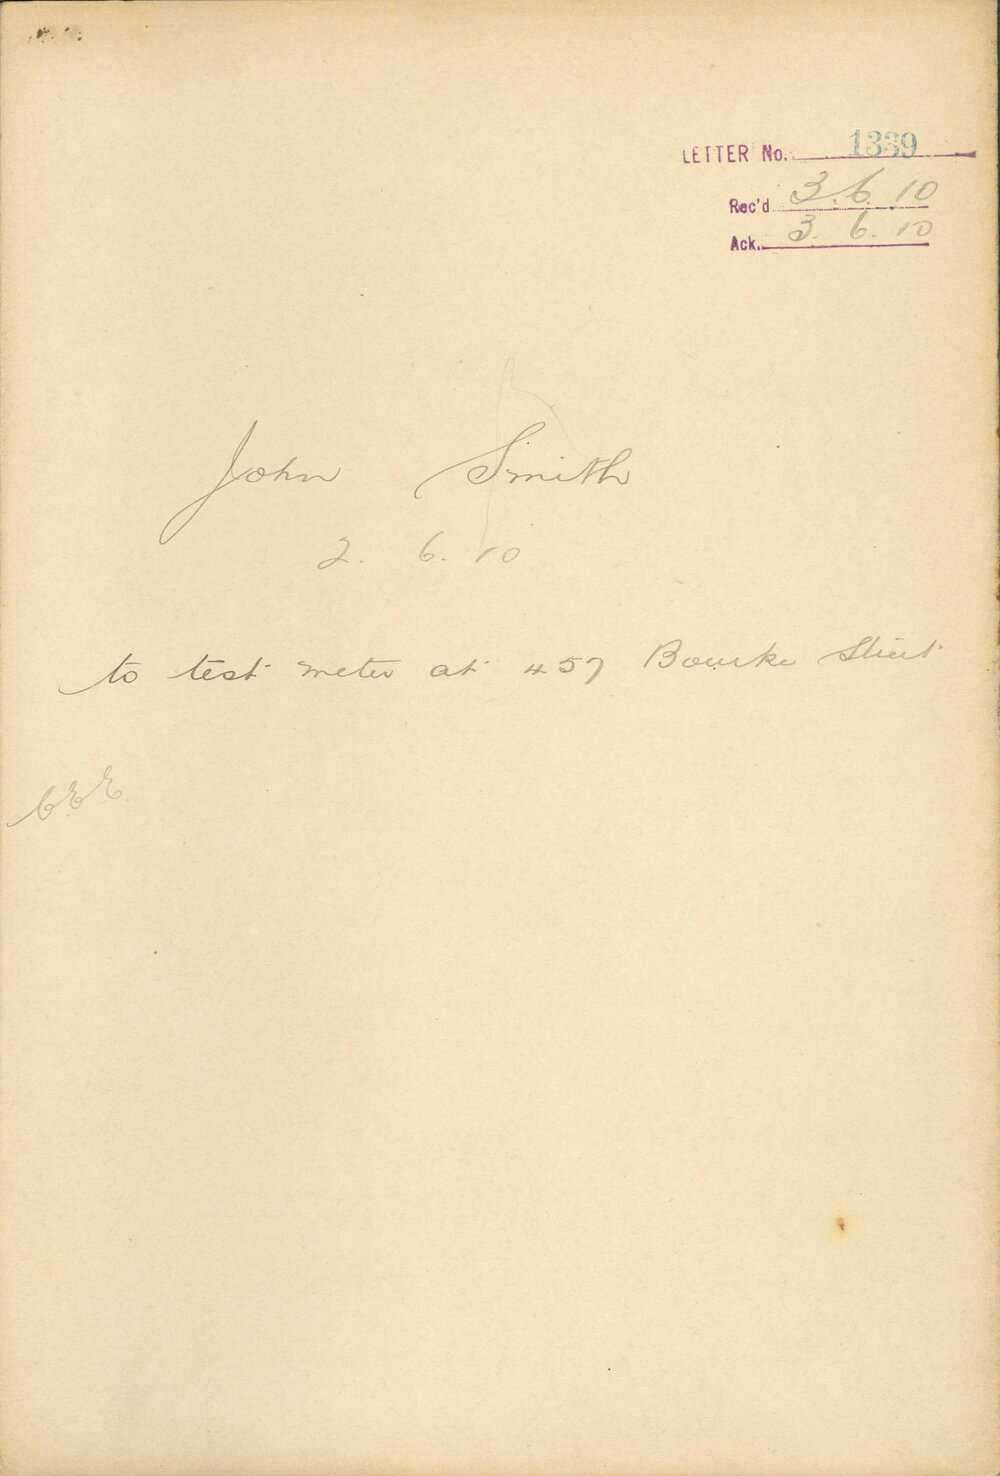 LETTER No. 1339
Rec'd 3.6.10
Ack. 3.6.10
John Smith
2.6.10
to test meter at 457 Bourke Street